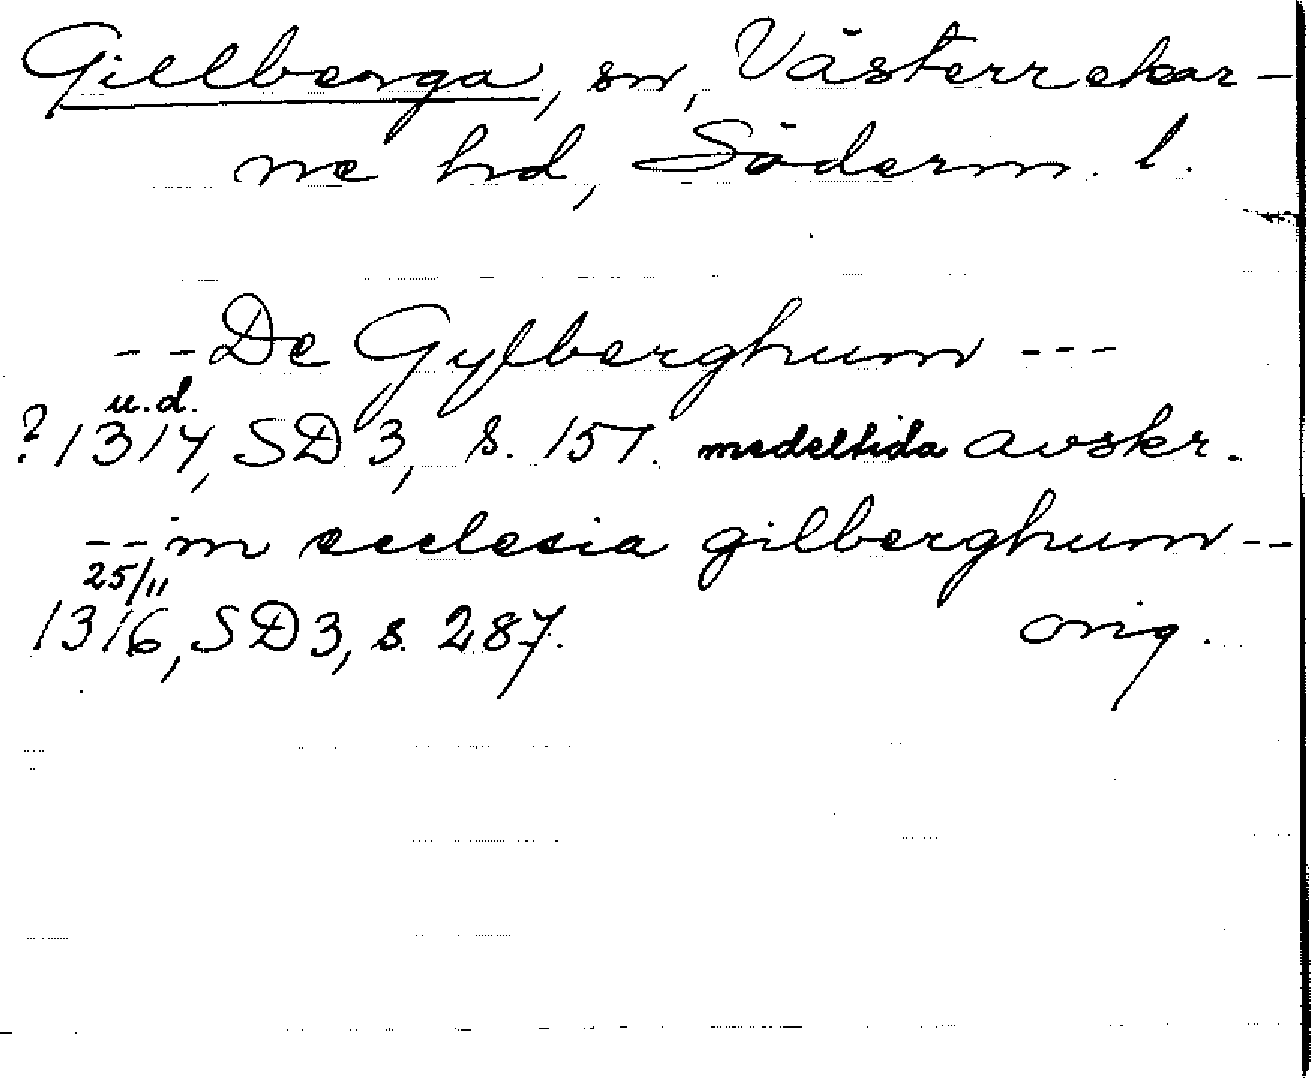 Gillberga, sn, Västerrekar-
ne hd, Söderm. l.
- - De Gylberghum - - -
u.d.
? 1314, SD 3, s. 157. medeltida avskr.
- - in ecclesia gilberghum - -
25/11
1316, SD 3, s. 287. orig.